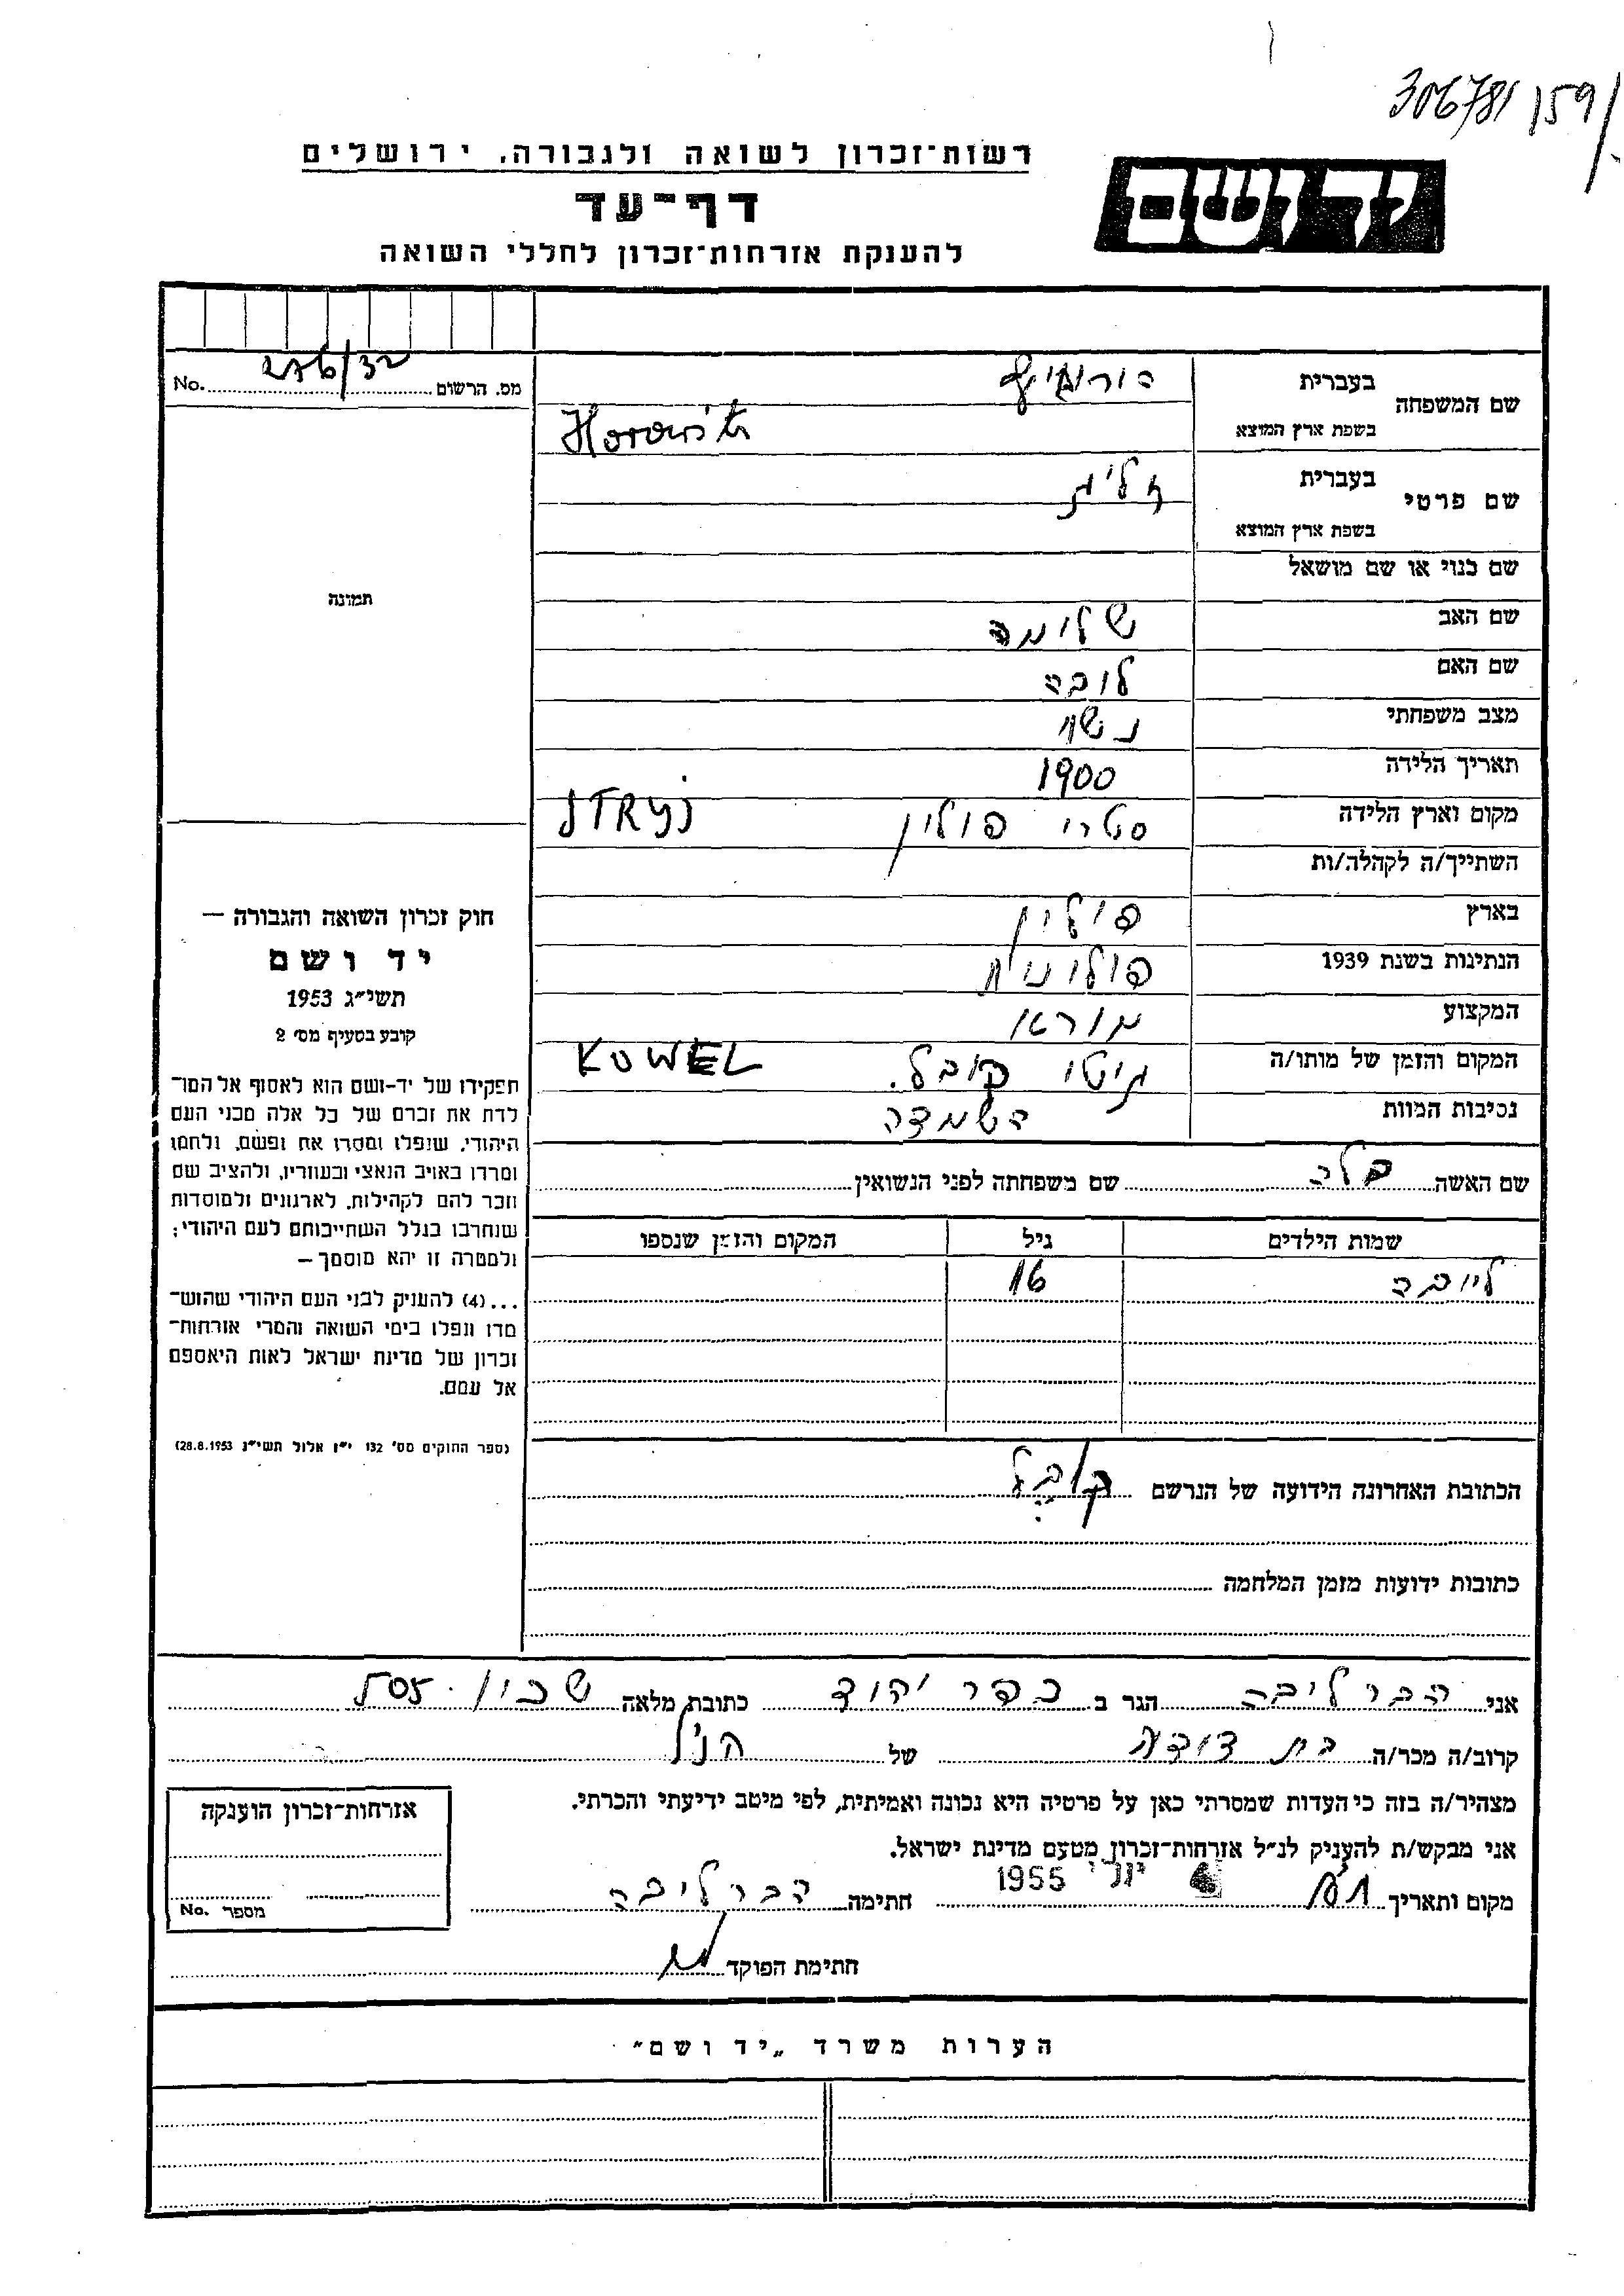 306781 159/
רשות־זכרון לשואה ולגבורה, ירושלים
יד ושם
דף־עד
להענקת אזרחות־זכרון לחללי השואה
מס. הרשום No. 276/32
שם המשפחה בעברית הורוביץ
בשפת ארץ המוצא Horowitz
שם פרטי בעברית
בשפת ארץ המוצא
שם כנוי או שם מושאל
שם האב שלומה
שם האם לובה
מצב משפחתי נשוי
תאריך הלידה 1900
מקום וארץ הלידה סטרי פולין STRYJ
השתייך/ה לקהלה/ות
בארץ פולין
הנתינות בשנת 1939 פולונית
המקצוע
המקום והזמן של מותו/ה גיטו קובל. KOWEL
נסיבות המוות השמדה
שם האשה בלה שם משפחתה לפני הנשואין
שמות הילדים גיל המקום והזמן שנספו
ליובה 16
הכתובת האחרונה הידועה של הנרשם קובל
כתובות ידועות מזמן המלחמה
תמונה
חוק זכרון השואה והגבורה —
יד ושם
תשי״ג 1953
קובע בסעיף מס׳ 2
תפקידו של יד-ושם הוא לאסוף אל המו־
לדת את זכרם של כל אלה מבני העם
היהודי, שנפלו ומסרו את נפשם, נלחמו
ומרדו באויב הנאצי ובעוזריו, ולהציב שם
וזכר להם לקהילות, לארגונים ולמוסדות
שנחרבו בגלל השתייכותם לעם היהודי;
ולמטרה זו יהא מוסמך —
...(4) להעניק לבני העם היהודי שהוש־
מדו ונפלו בימי השואה והמרי אזרחות־
זכרון של מדינת ישראל לאות היאספם
אל עמם.
(ספר החוקים מס׳ 132 י״ז אלול תשי״ג 28.8.1953)
אני הבר ליבה הגר ב כפר יהוד כתובת מלאה שכון 505
קרוב/ה מכר/ה בת דודה של הנ״ל
מצהיר/ה בזה כי העדות שמסרתי כאן על פרטיה היא נכונה ואמיתית, לפי מיטב ידיעתי והכרתי.
אני מבקש/ת להעניק לנ״ל אזרחות־זכרון מטעם מדינת ישראל.
מקום ותאריך 1955 חתימה הבר ליבה
חתימת הפוקד
אזרחות־זכרון הוענקה
מספר No.
הערות משרד „יד ושם״